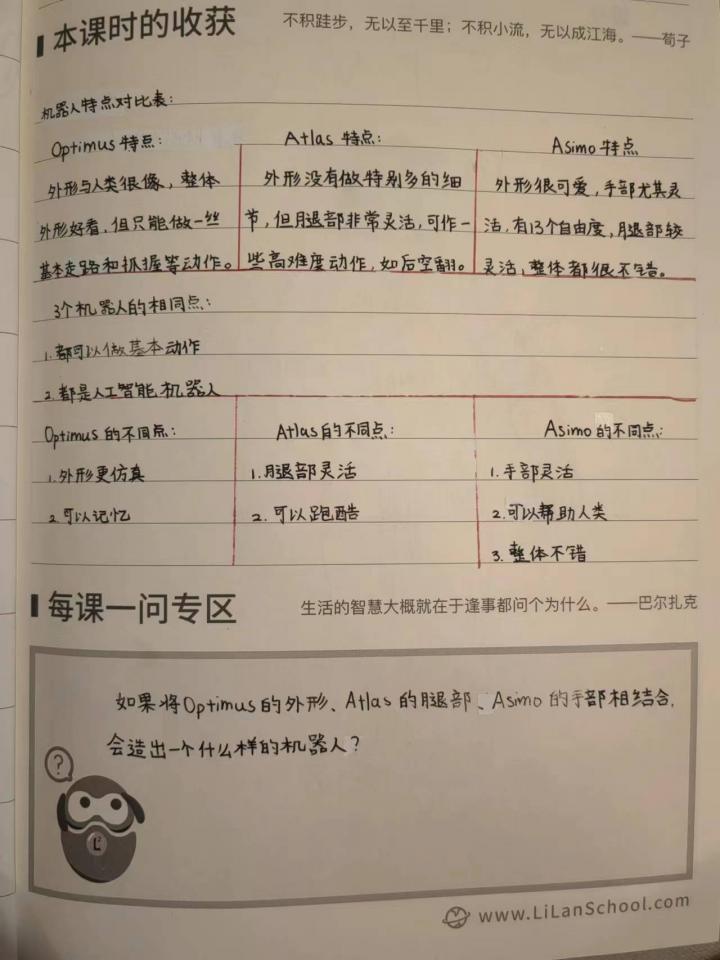 本课时的收获
不积跬步，无以至千里；不积小流，无以成江海。——荀子
机器人特点对比表：
Optimus 特点：
外形与人类很像，整体
外形好看，但只能做一些
基本走路和抓握等动作。
Atlas 特点：
外形没有做特别多的细
节，但腿部非常灵活，可作一
些高难度动作，如后空翻。
Asimo 特点
外形很可爱，手部尤其灵
活，有13个自由度，腿部较
灵活，整体都很不错。
3个机器人的相同点：
1.都可以做基本动作
2.都是人工智能机器人
Optimus 的不同点：
1.外形更仿真
2.可以记忆
Atlas 的不同点：
1.腿部灵活
2.可以跑酷
Asimo 的不同点：
1.手部灵活
2.可以帮助人类
3.整体不错
每课一问专区
生活的智慧大概就在于逢事都问个为什么。——巴尔扎克
如果将Optimus的外形、Atlas的腿部、Asimo的手部相结合，
会造出一个什么样的机器人？
?
L
www.LiLanSchool.com